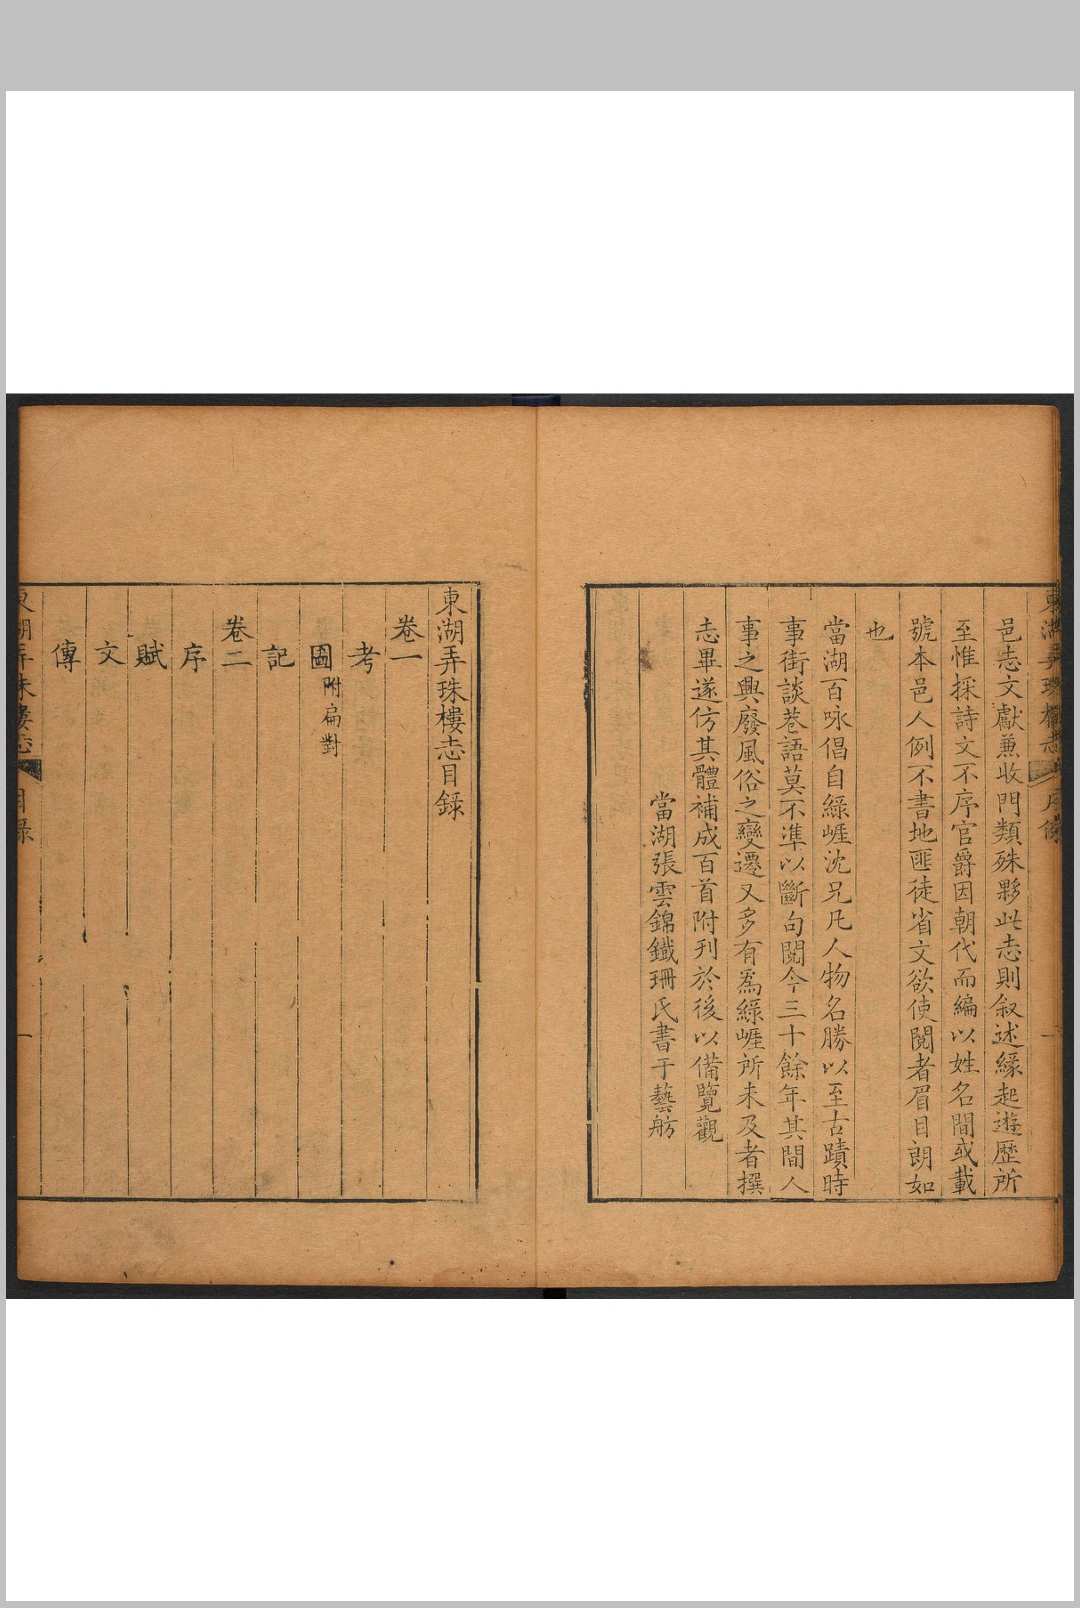 邑志文獻兼收門類殊夥此志則叙述緣起遊歷所
至惟採詩文不序官爵因朝代而編以姓名間或載
號本邑人例不書地匪徒省文欲使閱者眉目朗如
也
當湖百咏倡自綠崕沈兄凡人物名勝以至古蹟時
事街談巷語莫不準以斷句閱今三十餘年其間人
事之興廢風俗之變遷又多有為綠崕所未及者撰
志畢遂仿其體補成百首附刊於後以備覽觀
當湖張雲錦鐵珊氏書于藝舫
東湖弄珠樓志目錄
卷一
考
圖 附扁對
記
卷二
序
賦
文
傳
東湖弄珠樓志 目錄 一